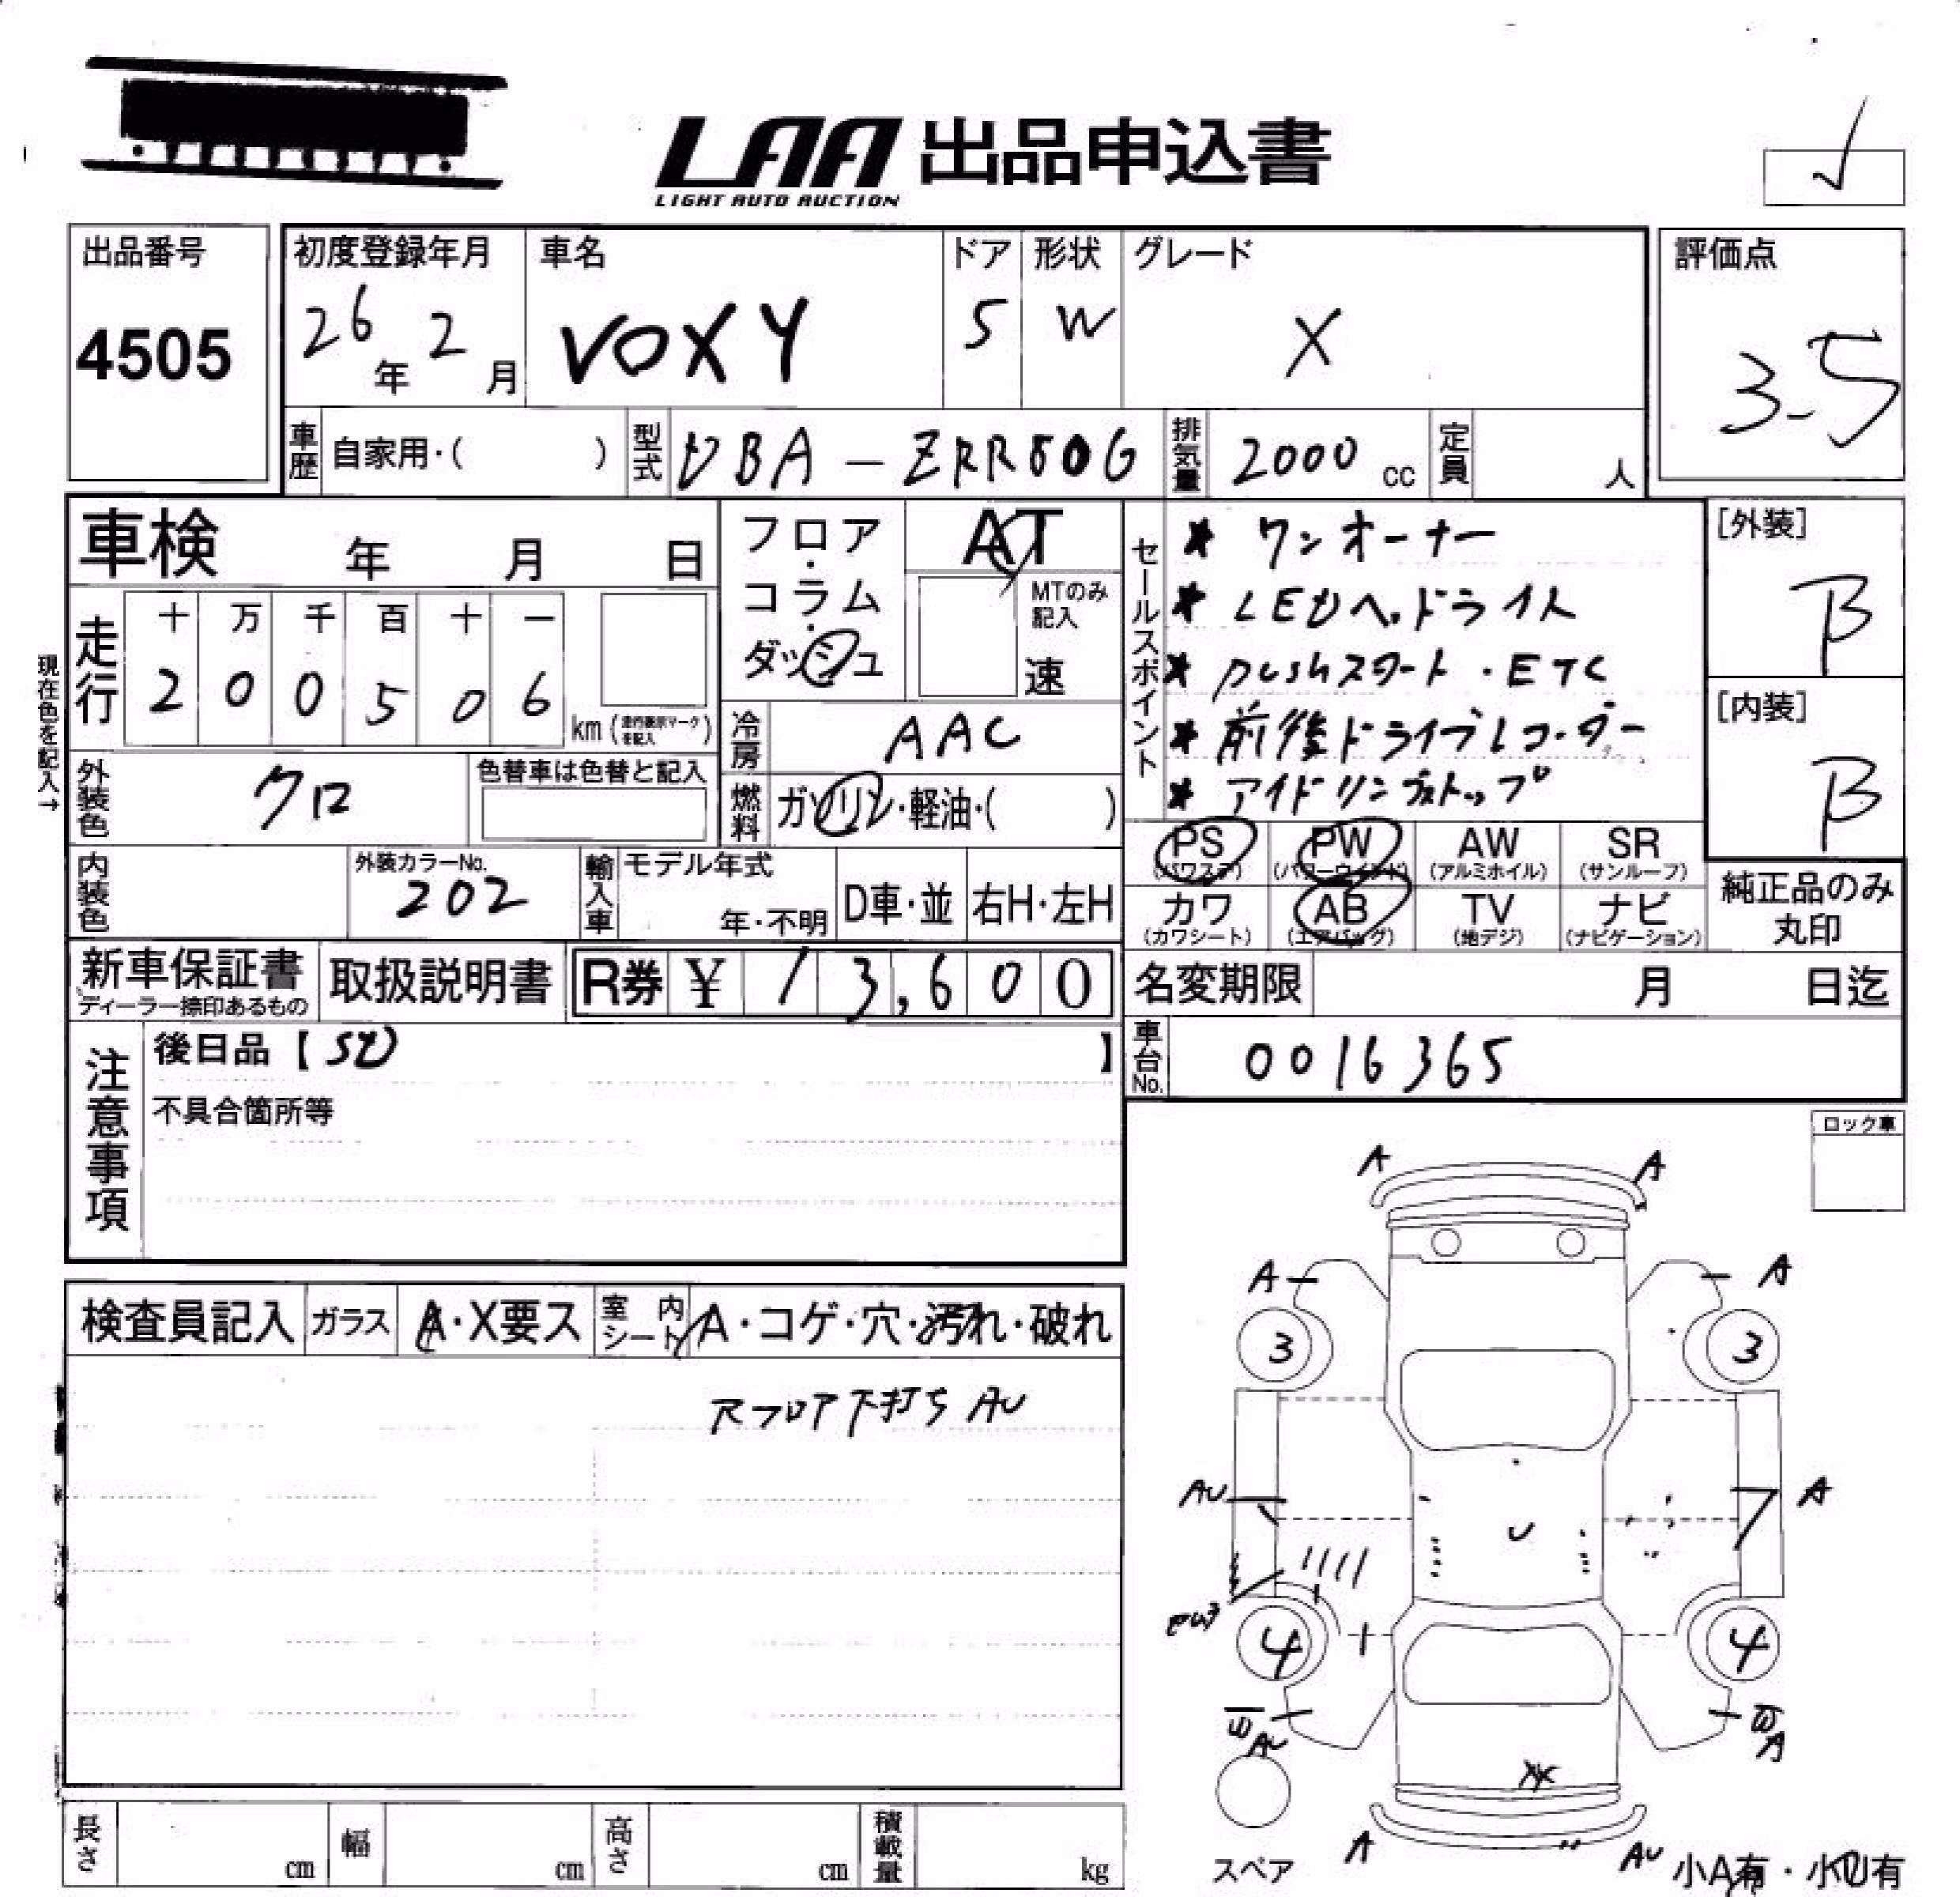 LAA 出品申込書
LIGHT AUTO AUCTION
出品番号
4505
初度登録年月
26年 2月
車名
VOXY
ドア
5
形状
W
グレード
X
評価点
3.5
車歴 自家用・( )
型式 DBA-ZRR80G
排気量 2000 cc
定員 人
車検 年 月 日
現在色を記入→
走行
十 万 千 百 十 一
2 0 0 5 0 6
km (走行表示マークを記入)
フロア・コラム・ダッシュ
AT
MTのみ記入
速
冷房 AAC
燃料 ガソリン・軽油・( )
外装色 クロ
色替車は色替と記入
内装色
外装カラーNo.
202
輸入車 モデル年式
年・不明
D車・並
右H・左H
セールスポイント
* ワンオーナー
* LEDヘッドライト
* pushスタート・ETC
* 前後ドライブレコーダー
* アイドリングストップ
[外装]
B
[内装]
B
PS (パワステ)
PW (パワーウインド)
AW (アルミホイル)
SR (サンルーフ)
カワ (カワシート)
AB (エアバッグ)
TV (地デジ)
ナビ (ナビゲーション)
純正品のみ
丸印
新車保証書
ディーラー捺印あるもの
取扱説明書
R券 ¥ 13,600
名変期限 月 日迄
車台No. 0016365
注意事項
後日品【SD】
不具合箇所等
ロック車
検査員記入
ガラス A・X要ス
室内シート A・コゲ・穴・汚れ・破れ
Rフロア下打ち AU
A A
A A
3 3
AU A
4 4
AU A
XX
A AU
スペア
小A有・小U有
長さ cm
幅 cm
高さ cm
積載量 kg